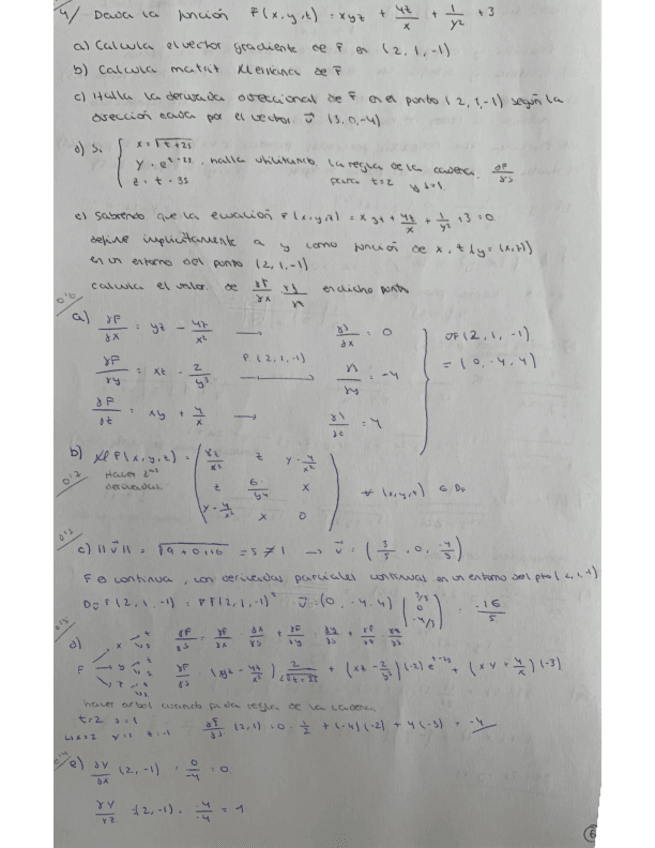 4/ Dada la función F(x,y,z) = xyz + 4z/x + 1/y² + 3
a) Calcula el vector gradiente de F en (2, 1, -1)
b) Calcula matriz Hessiana de F
c) Halla la derivada direccional de F en el punto (2, 1, -1) según la
dirección dada por el vector v⃗ (3, 0, -4)
d) Si { x = √t+2s
y = e^t-2s , halla utilizando la regla de la cadena ∂F/∂s
z = t - 3s para t=2 y s=1
e) Sabiendo que la ecuación F(x,y,z) = xyz + 4z/x + 1/y² + 3 = 0
define implícitamente a y como función de x, z
en un entorno del punto (2, 1, -1)
calcula el valor de en dicho punto
a) ∂F/∂x = yz - 4z/x² → = 0
∂F/∂y = xz - 2/y³ P(2,1,-1) → = -4
∂F/∂z = xy + 4/x → = 4
∇F(2, 1, -1)
= (0, -4, 4)
b) H F(x,y,z) =
Hacer 2
derivadas
z y - 4/x²
z 6/y⁴ x
y - 4/x² x 0
c) ||v⃗|| = √9+0+16 = 5 ≠ 1 → v⃗ = (3/5, 0, -4/5)
F es continua, con derivadas parciales continuas en un entorno del pto (2, 1, -1)
(0, -4, 4) (3/5 0 -4/5) = -16/5
d) ∂F/∂s = ∂F/∂x · ∂x/∂s + ∂F/∂y · ∂y/∂s + ∂F/∂z · ∂z/∂s
F x y z t s
∂F/∂s = (yz - 4z/x²) + (xz - 2/y³)(-2) e^t-2s + (xy + 4/x)(-3)
hacer arbol cuando pida regla de la cadena
t=2 s=1
x=2 y=1 z=-1 ∂F/∂s (2,1) = 0 · 1/2 + (-4)(-2) + 4(-3) = -4
e) ∂y/∂x (2, -1) = 0/-4 = 0
∂y/∂z (2, -1) = -4/-4 = 1
6